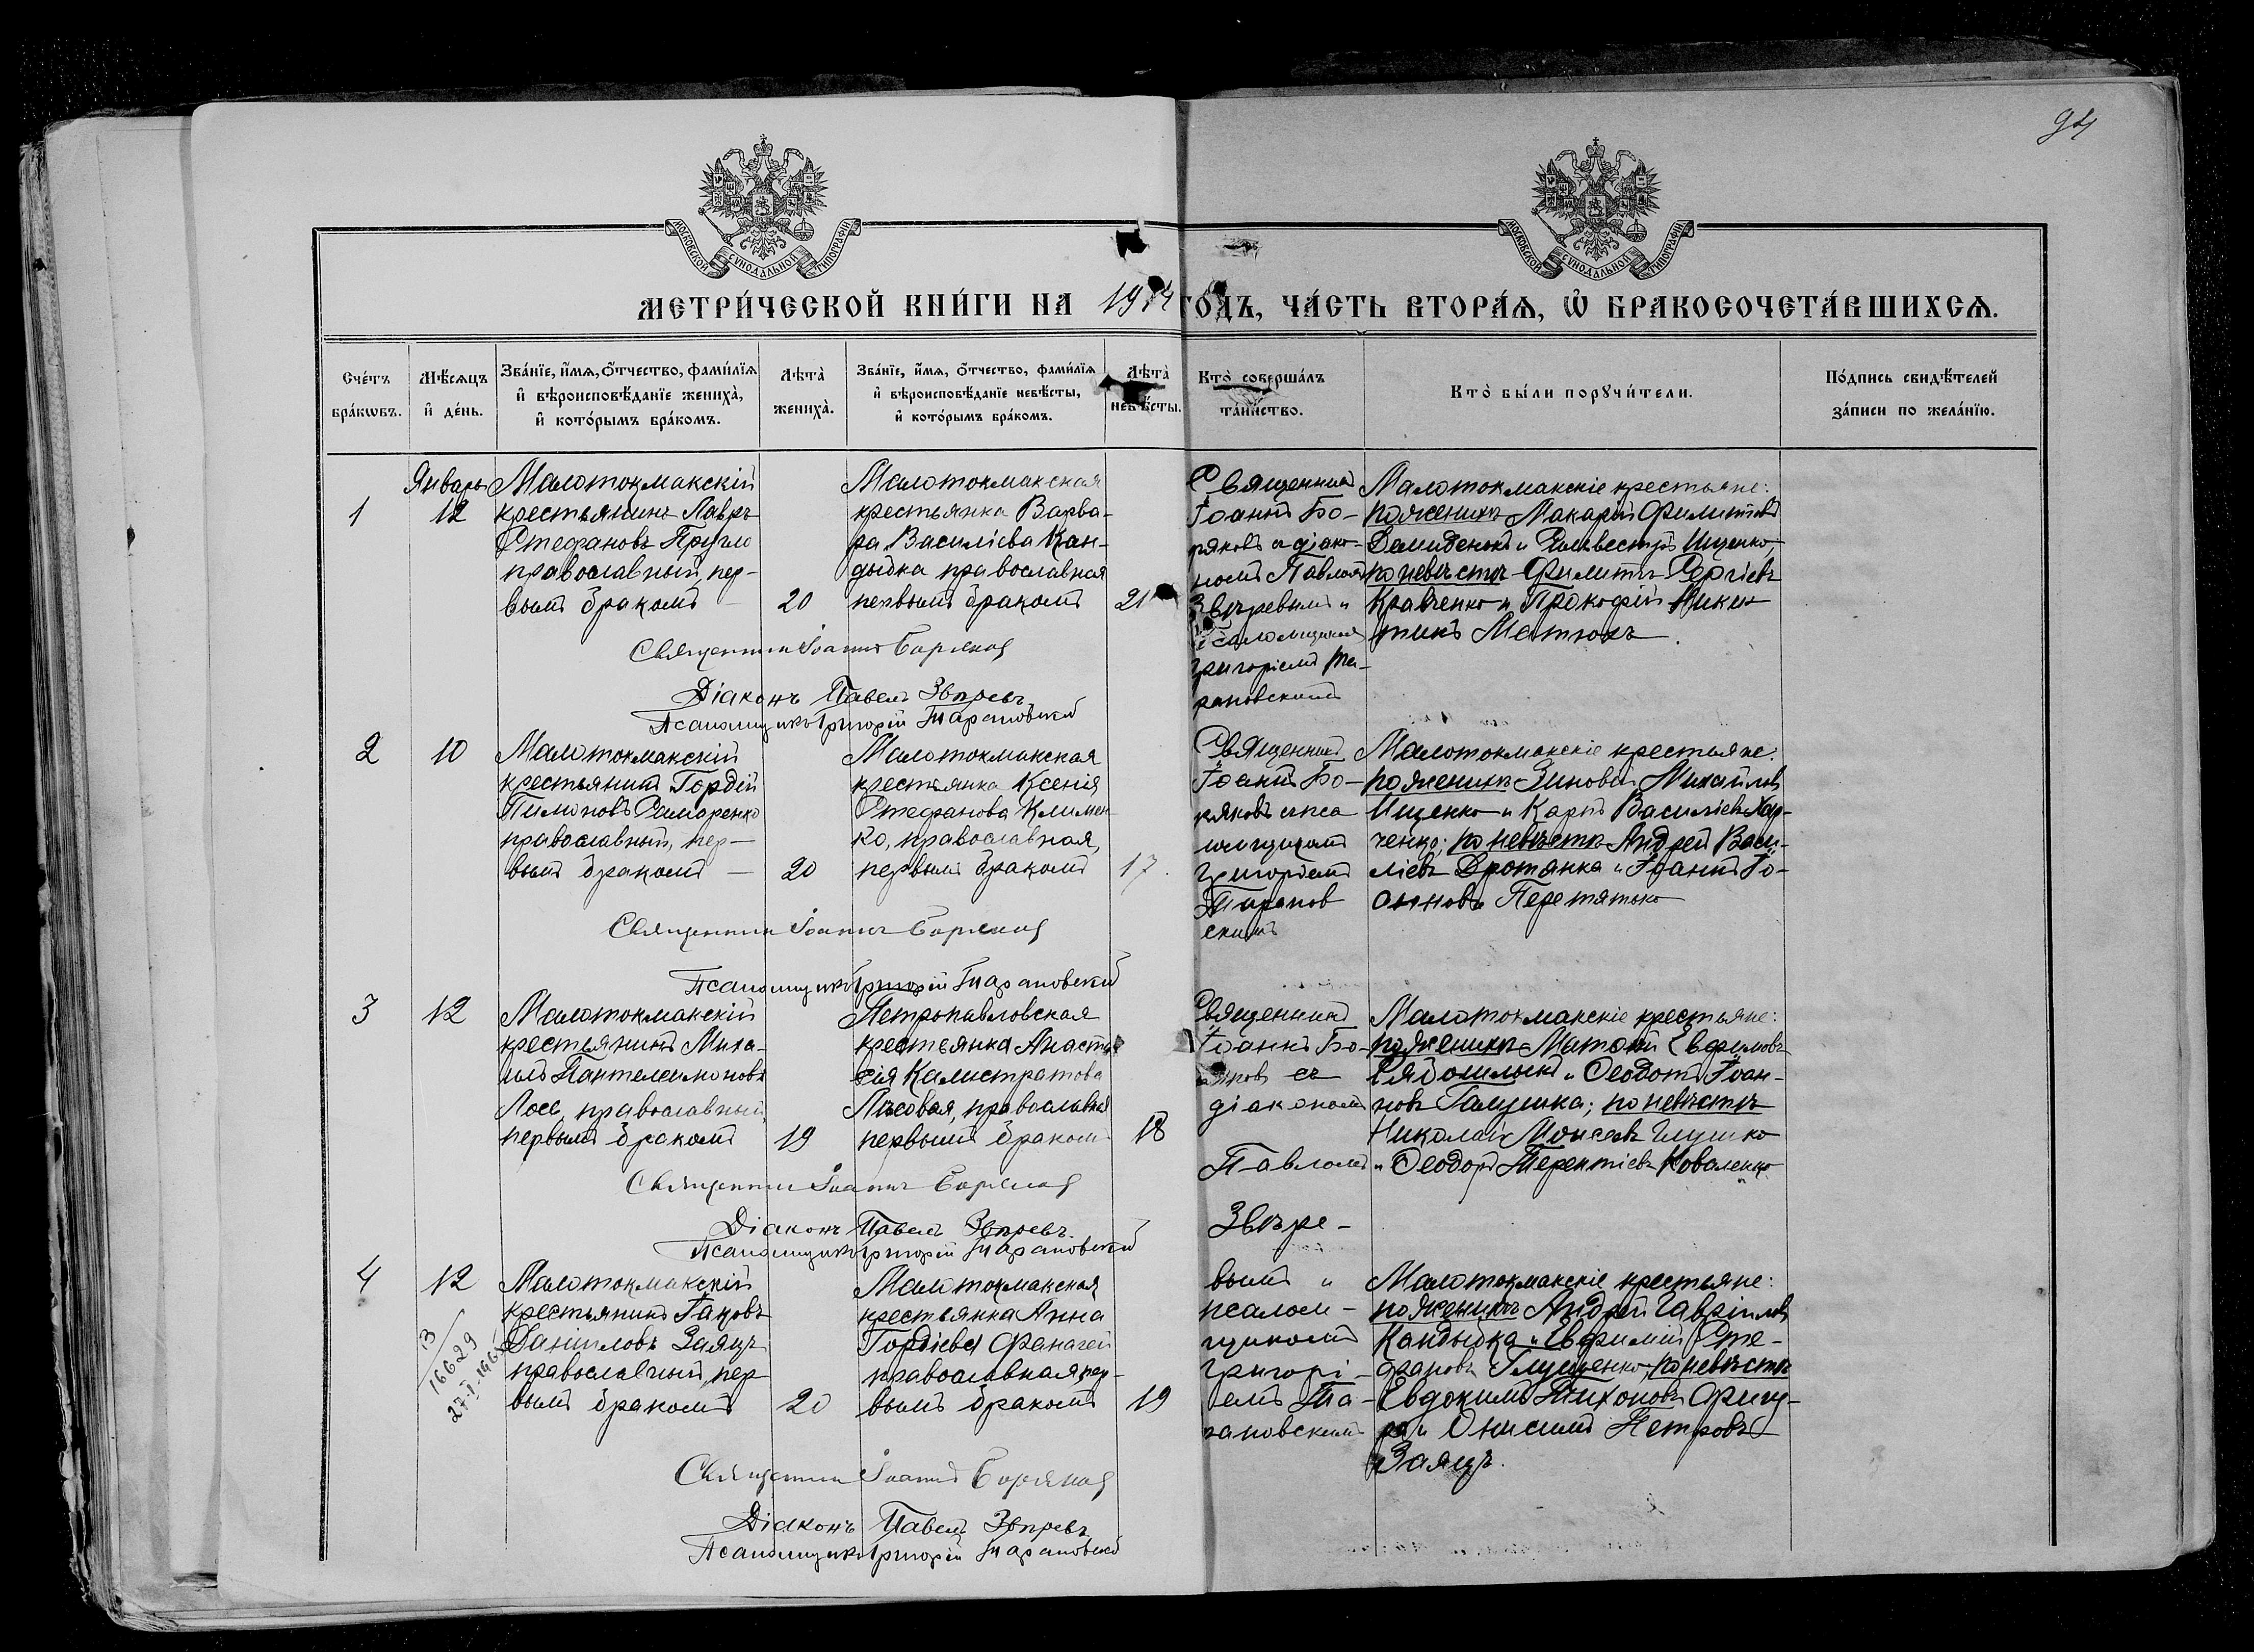 94
МОСКОВСКОЙ СУНОДАЛЬНОЙ ТИПОГРАФІИ
МОСКОВСКОЙ СУНОДАЛЬНОЙ ТИПОГРАФІИ
МЕТРИ́ЧЕСКОЙ КНИ́ГИ НА 1914 ГОДЪ, ЧА́СТЬ ВТОРА́Ѧ, Ѽ БРАКОСОЧЕТА́ВШИХСѦ.
Сче́тъ
бра́кѡвъ.
Мѣ́сѧцъ
и҆ де́нь.
Зва́нїе, и҆́мѧ, о҆́тчество, фами́лїѧ
и҆ вѣроисповѣ́данїе жениха̀,
и҆ кото́рымъ бра́комъ.
Лѣта̀
жениха̀.
Зва́нїе, и҆́мѧ, о҆́тчество, фами́лїѧ
и҆ вѣроисповѣ́данїе невѣ́сты,
и҆ кото́рымъ бра́комъ.
Лѣта̀
невѣ́сты.
Кто̀ соверша́лъ
та́инство.
Кто̀ бы́ли порꙋчи́тели.
По́дпись свидѣ́телей
за́писи по жела́нїю.
1
Январь
12
Малотокмакскій
крестьянинъ Лавръ
Стефановъ Пругло
православный, пер-
вымъ бракомъ
20
Малотокмакская
крестьянка Варва-
ра Василіева Кан-
дыбка православная
первымъ бракомъ
21
Священникъ
Іоаннъ Бо-
ряковъ съ діако-
номъ Павломъ
Звѣревымъ и
псаломщикомъ
Григоріемъ Та-
рановскимъ
Малотокмакскіе крестьяне:
по женихѣ Макарій Филипповъ
Демиденко и Сильвестръ Ищенко,
по невѣстѣ Филиппъ Сергіевъ
Кравченко и Прокофій Ники-
тинъ Матюхъ.
Священникъ Іоаннъ Боряковъ
Діаконъ Павелъ Звѣревъ
Псаломщикъ Григорій Тарановскій
2
10
Малотокмакскій
крестьянинъ Гордій
Пимоновъ Самаренко
православный, пер-
вымъ бракомъ
20
Малотокмакская
крестьянка Ксенія
Стефанова Климен-
ко, православная,
первымъ бракомъ
17.
Священникъ
Іоаннъ Бо-
ряковъ съ пса
ломщикомъ
Григоріемъ
Таранов
скимъ
Малотокмакскіе крестьяне:
по женихѣ Зиновій Михайловъ
Ищенко и Карпъ Василіевъ Хар-
ченко; по невѣстѣ Андрей Васи-
ліевъ Дротянка и Іоаннъ Іо-
анновъ Перетятько
Священникъ Іоаннъ Боряковъ
Псаломщикъ Григорій Тарановскій
3
12
Малотокмакскій
крестьянинъ Миха-
илъ Пантелеимоновъ
Лось, православный,
первымъ бракомъ
19
Петропавловская
крестьянка Анаста-
сія Калистратова
Лѣсовая, православная
первымъ бракомъ
18
Священникъ
Іоаннъ Бо-
ряковъ съ
діакономъ
Павломъ
Звѣре-
Малотокмакскіе крестьяне:
по женихѣ Матѳій Евфимовъ
и Ѳеодотъ Іоан-
новъ Галушка; по невѣстѣ
Николай Моисеевъ Глушко
и Ѳеодоръ Терентіевъ Коваленко
Священникъ Іоаннъ Боряковъ
Діаконъ Павелъ Звѣревъ.
Псаломщикъ Григорій Тарановскій
4
12
13/16629
27.I.1965
Малотокмакскій
крестьянинъ Іаковъ
Даніиловъ Заяцъ
православный, пер
вымъ бракомъ
20
Малотокмакская
крестьянка Анна
Гордіева Фанагей
православная, пер-
вымъ бракомъ
19
вымъ и
псалом-
щикомъ
Григорі-
емъ Та-
рановскимъ
Малотокмакскіе крестьяне:
по женихѣ Андрей Гавріиловъ
Кандыбка и Евфимій Сте-
фановъ Глущенко, по невѣстѣ
Евдокимъ Тихоновъ Фигу-
ра и Онисимъ Петровъ
Заяцъ.
Священникъ Іоаннъ Боряковъ
Діаконъ Павелъ Звѣревъ
Псаломщикъ Григорій Тарановскій